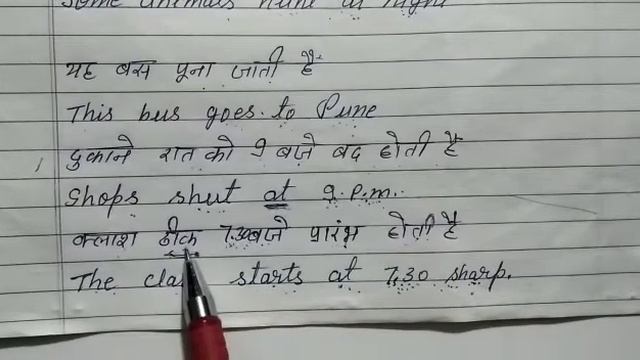 Some animals hunt at night
यह बस पूना जाती है
This bus goes to Pune
दुकाने रात को 9 बजे बंद होती है
Shops shut at 9.P.m.
क्लाश ठीक 7.30बजे प्रारंभ होती है
The class starts at 7.30 sharp.